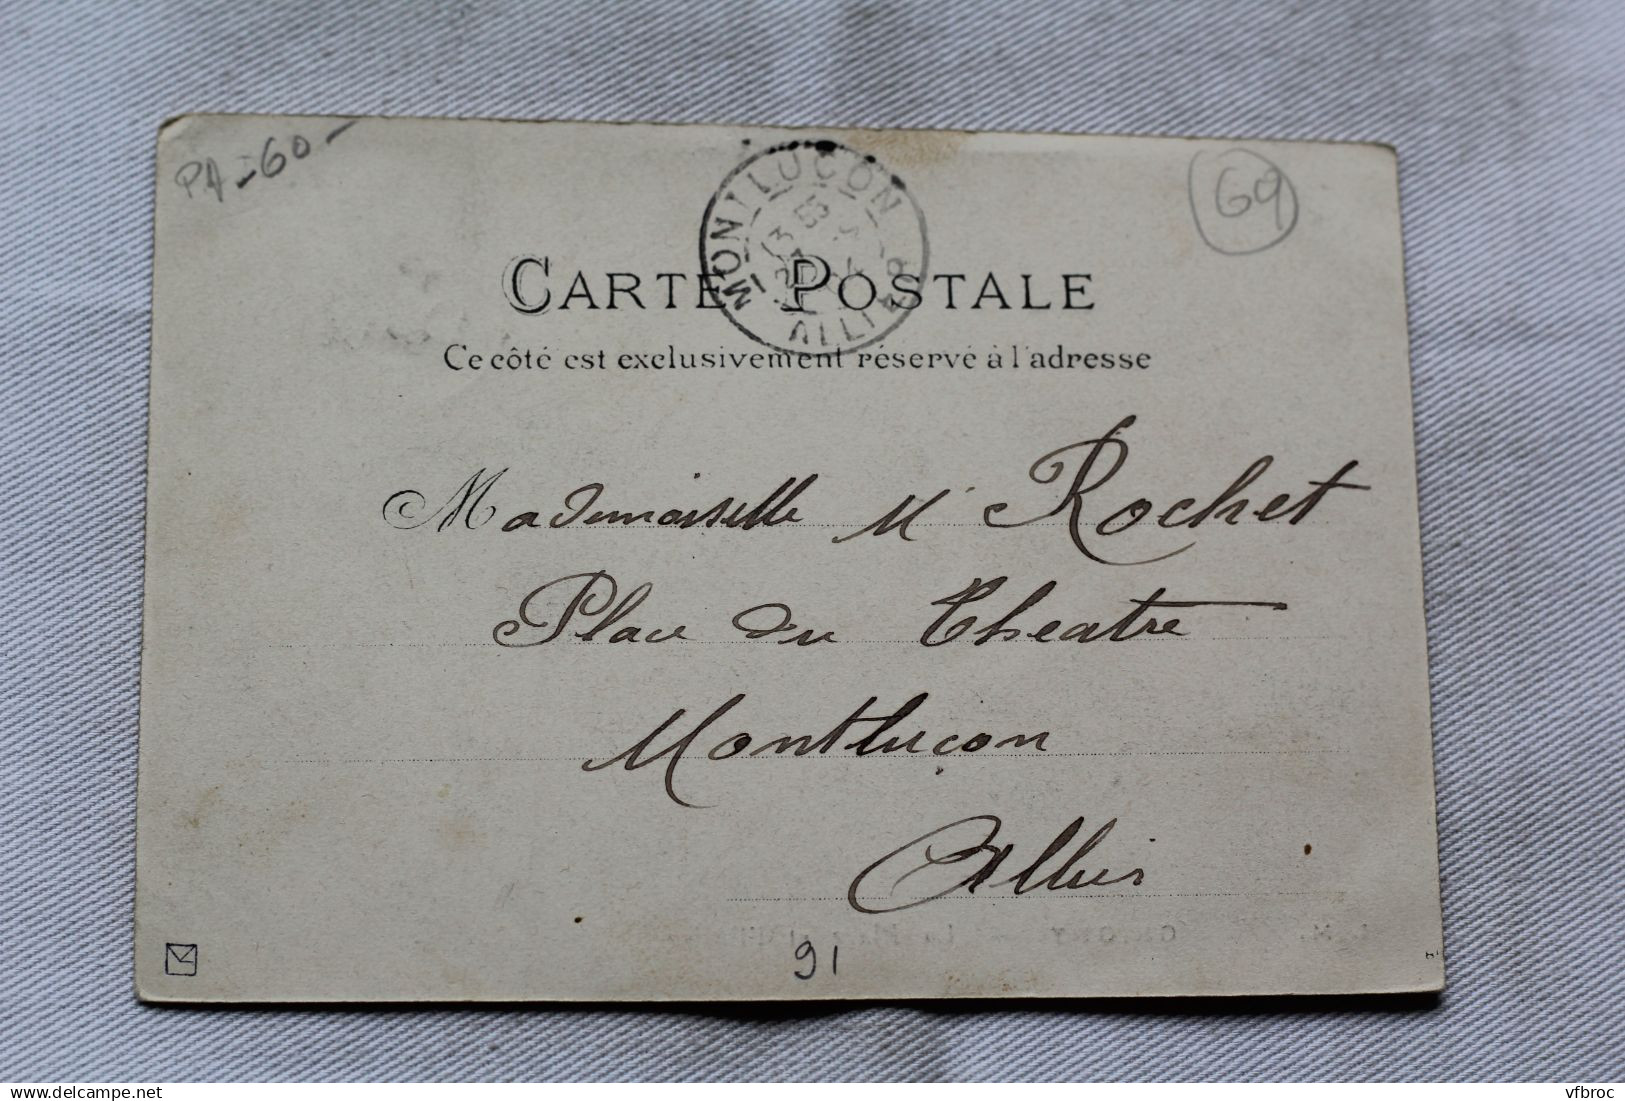 PA-60-
69
MONTLUCON
ALLIER
CARTE POSTALE
Ce côté est exclusivement réservé à l'adresse
Mademoiselle M Rochet
Place du Theatre
Montluçon
Allier
91
vfbroc